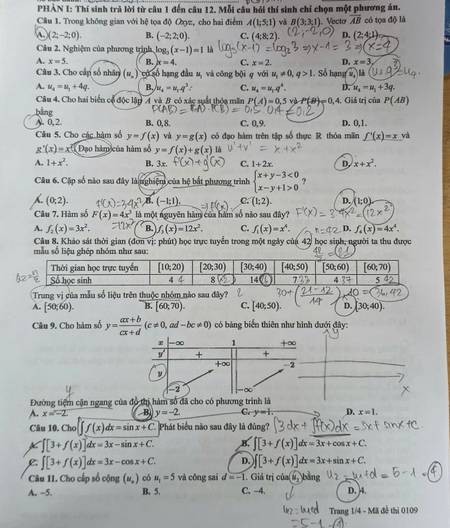 PHẦN I: Thí sinh trả lời từ câu 1 đến câu 12. Mỗi câu hỏi thí sinh chỉ chọn một phương án.
Câu 1. Trong không gian với hệ tọa độ Oxyz, cho hai điểm A(1;5;1) và B(3;3;1). Vectơ AB có tọa độ là
A. (2;-2;0). B. (-2;2;0). C. (4;8;2). D. (2;4;1).
Câu 2. Nghiệm của phương trình log₃(x-1)=1 là
A. x=5. B. x=4. C. x=2. D. x=3.
Câu 3. Cho cấp số nhân (uₙ) có số hạng đầu u₁ và công bội q với u₁≠0, q>1. Số hạng u₄ là
A. u₄=u₁+4q. B. u₄=u₁q³. C. u₄=u₁q⁴. D. u₄=u₁+3q.
Câu 4. Cho hai biến cố độc lập A và B có xác suất thỏa mãn P(A)=0,5 và P(B)=0,4. Giá trị của P(AB)
bằng
A. 0,2. B. 0,8. C. 0,9. D. 0,1.
Câu 5. Cho các hàm số y=f(x) và y=g(x) có đạo hàm trên tập số thực R thỏa mãn f'(x)=x và
g'(x)=x². Đạo hàm của hàm số y=f(x)+g(x) là u'+v' = x+x²
A. 1+x². B. 3x. f'(x)+g'(x) C. 1+2x. D. x+x².
Câu 6. Cặp số nào sau đây là nghiệm của hệ bất phương trình { x+y-3<0
x-y+1>0 ?
A. (0;2). B. (-1;1). C. (1;2). D. (1;0).
Câu 7. Hàm số F(x)=4x³ là một nguyên hàm của hàm số nào sau đây?
A. f₂(x)=3x². B. f₁(x)=12x². C. f₃(x)=x⁴. D. f₄(x)=4x⁴.
Câu 8. Khảo sát thời gian (đơn vị: phút) học trực tuyến trong một ngày của 42 học sinh, người ta thu được
mẫu số liệu ghép nhóm như sau:
Thời gian học trực tuyến [10;20) [20;30) [30;40) [40;50) [50;60) [60;70)
Số học sinh 4 8 14 7 4 5
Trung vị của mẫu số liệu trên thuộc nhóm nào sau đây?
A. [50;60). B. [60;70). C. [40;50). D. [30;40).
Câu 9. Cho hàm số y = (ax+b)/(cx+d) (c≠0, ad-bc≠0) có bảng biến thiên như hình dưới đây:
x -∞ 1 +∞
y' + +
+∞ -2
y
-2 -∞
Đường tiệm cận ngang của đồ thị hàm số đã cho có phương trình là
A. x=-2. B. y=-2. C. y=1. D. x=1.
Câu 10. Cho ∫f(x)dx=sin x+C. Phát biểu nào sau đây là đúng?
A. ∫[3+f(x)]dx=3x-sin x+C. B. ∫[3+f(x)]dx=3x+cos x+C.
C. ∫[3+f(x)]dx=3x-cos x+C. D. ∫[3+f(x)]dx=3x+sin x+C.
Câu 11. Cho cấp số cộng (uₙ) có u₁=5 và công sai d=-1. Giá trị của u₂ bằng u₂=u₁+d=5-1=4
A. -5. B. 5. C. -4. D. 4.
Trang 1/4 - Mã đề thi 0109